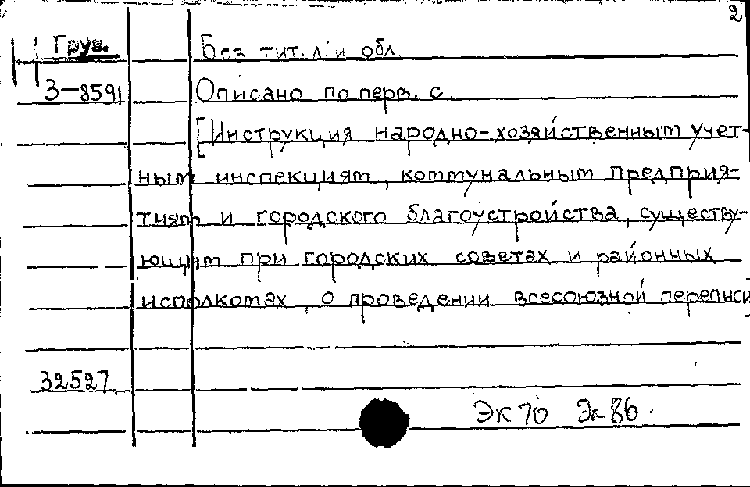 2
Груз. Без тит. л. и обл.
3-8591 Описано по перв. с.
[Инструкция народно-хозяйственным учет-
ным инспекциям, коммунальным предприя-
тиям и городского благоустройства, существу-
ющим при городских советах и районных
исполкомах, о проведении всесоюзной переписи
32527.
Эк 70 Эк 86.